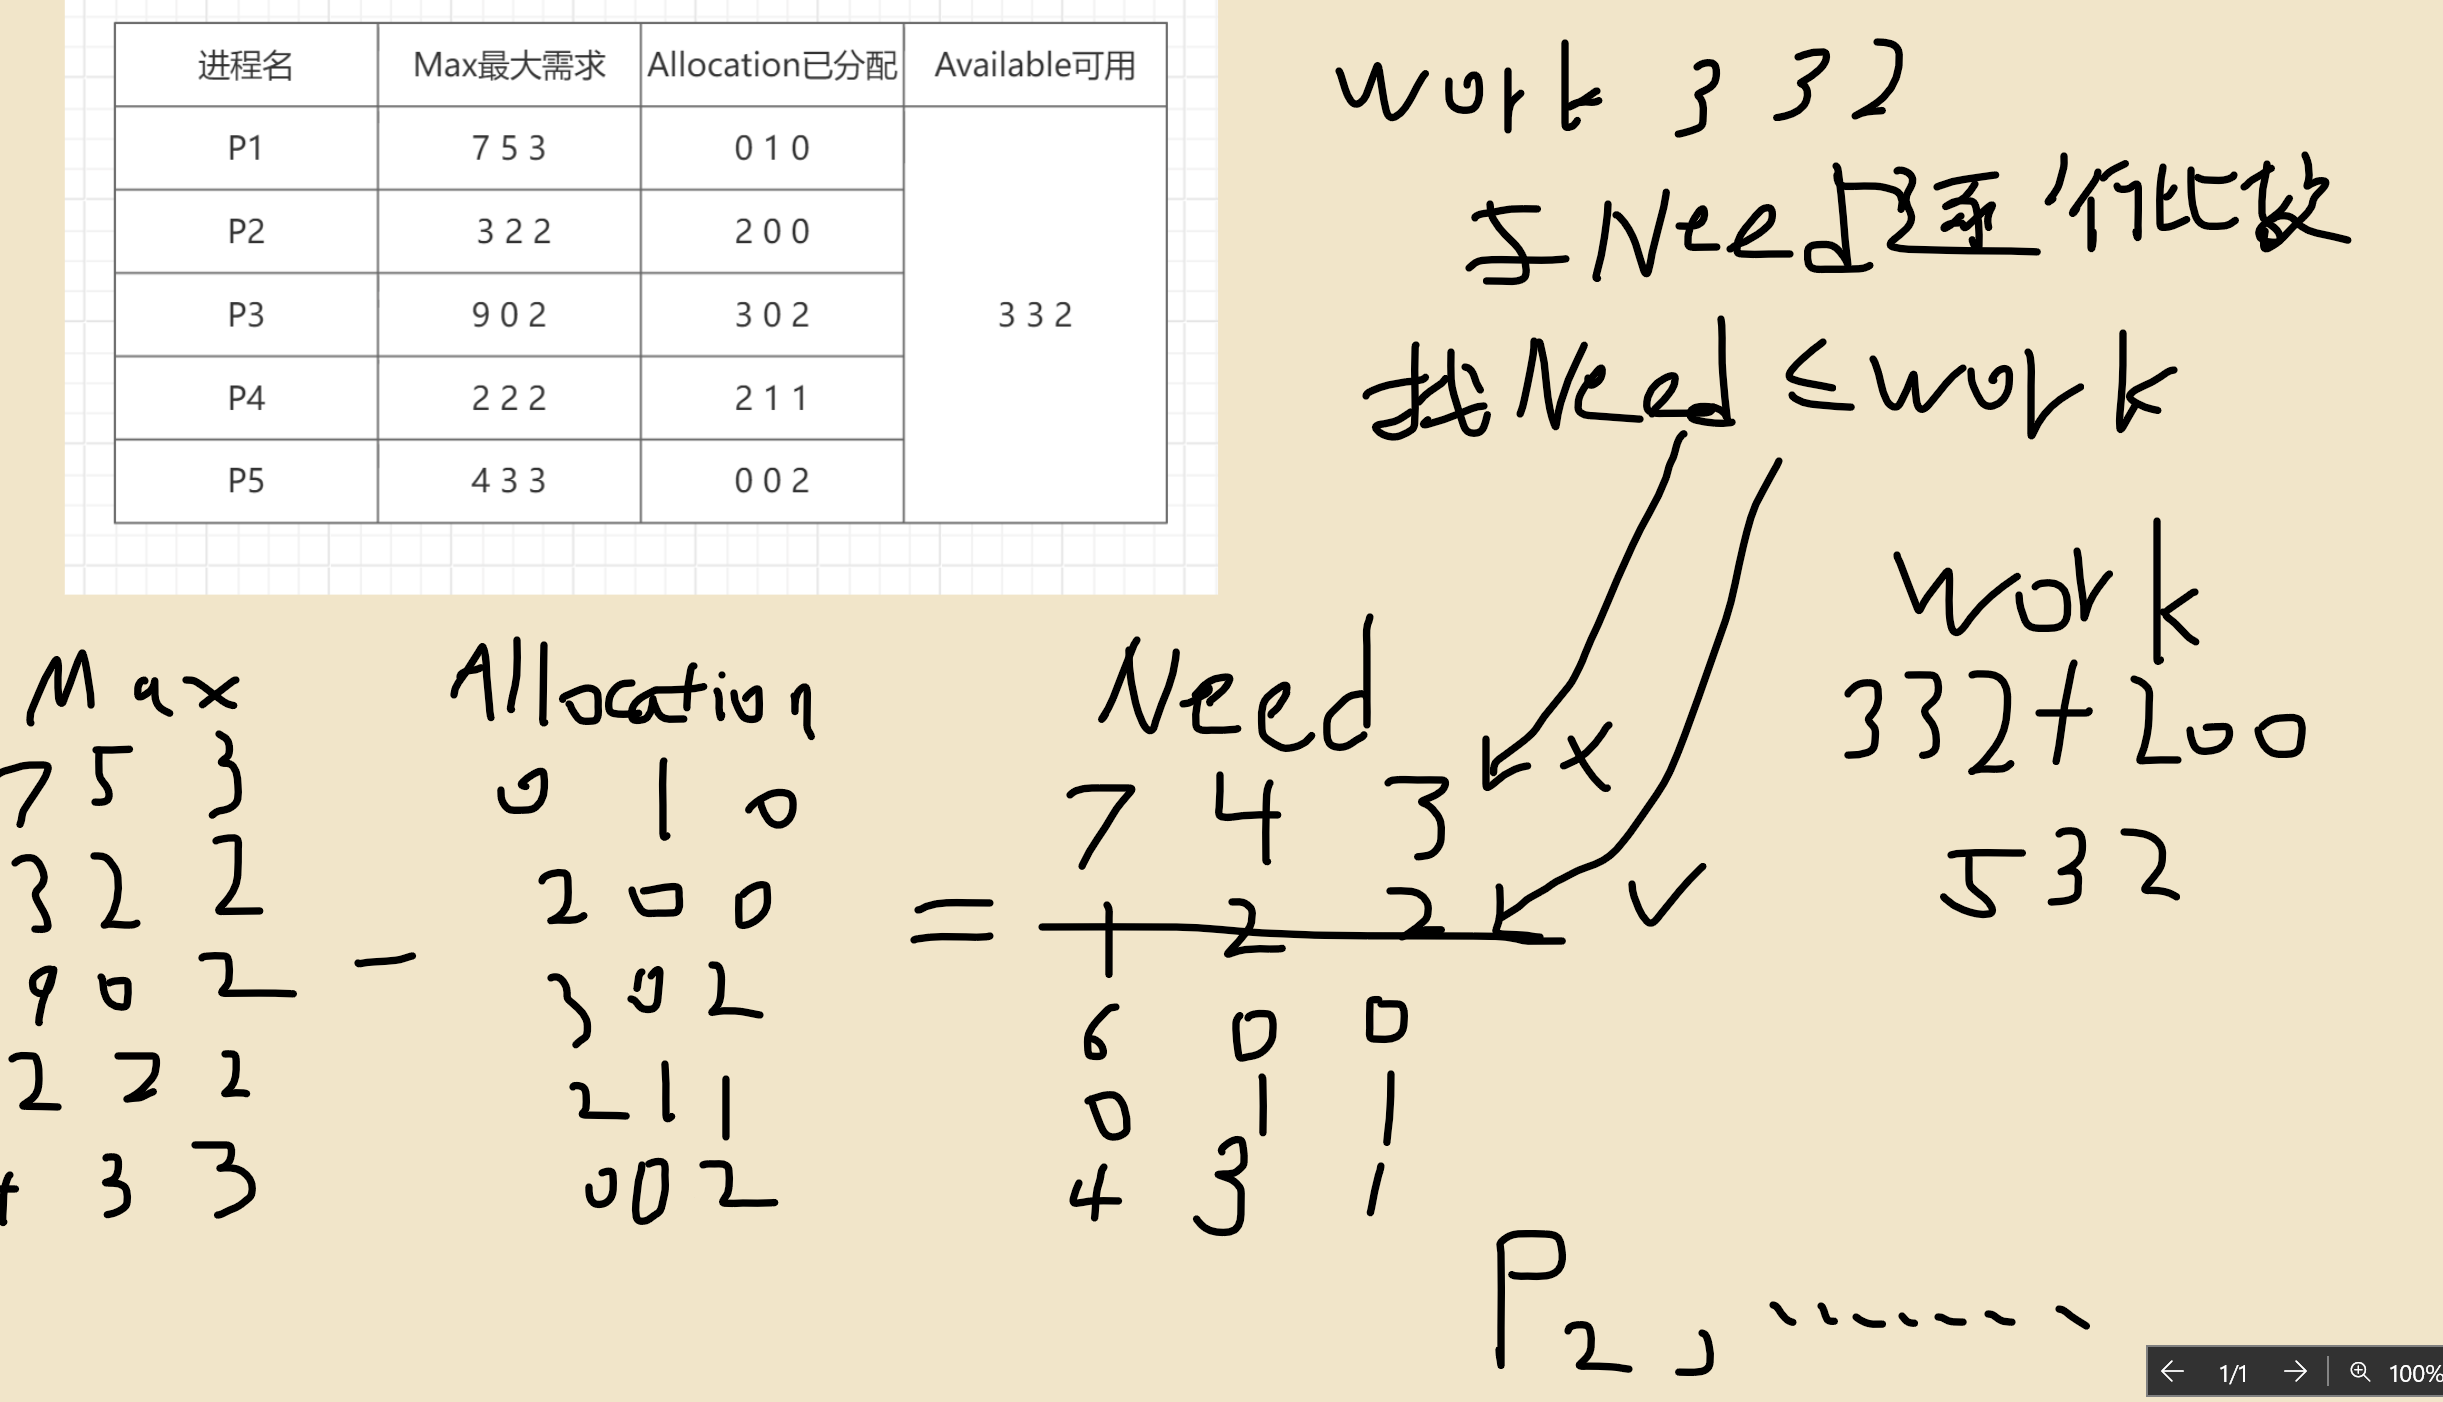 进程名 Max最大需求 Allocation已分配 Available可用
P1 7 5 3 0 1 0
P2 3 2 2 2 0 0
P3 9 0 2 3 0 2 3 3 2
P4 2 2 2 2 1 1
P5 4 3 3 0 0 2
work 3 3 2
与Need逐行比较
找Need ≤ work
work
332+200
532
Max Allocation Need
7 5 3 0 1 0 7 4 3 ×
3 2 2 2 0 0 = 1 2 2 ✓
9 0 2 - 3 0 2 6 0 0
2 2 2 2 1 1 0 1 1
4 3 3 0 0 2 4 3 1
P2, .......
1/1 100%